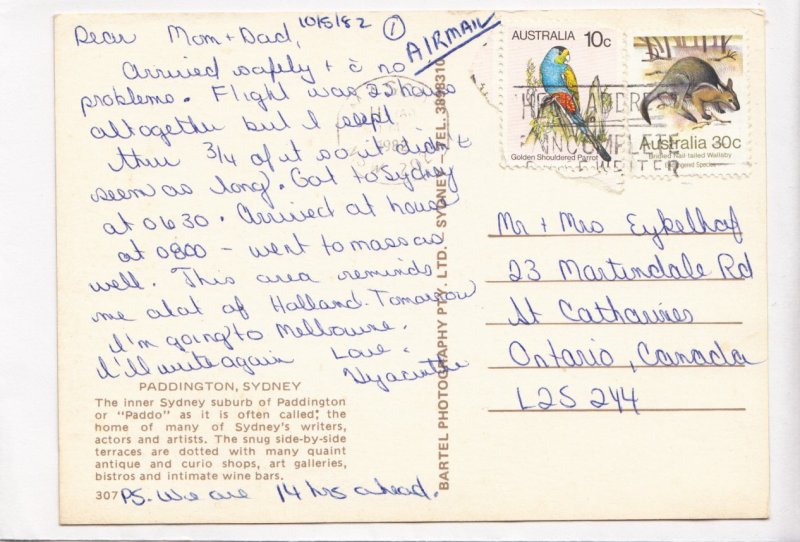 10/5/82 1
AIRMAIL
Dear Mom + Dad,
Arrived safely + c̄ no
problems. Flight was 22 hours
altogether but I slept
thru 3/4 of it so it didn't
seem as long. Got to Sydney
at 0630. Arrived at house
at 0800 - went to mass as
well. This area reminds
me alot of Holland. Tomorrow
I'm going to Melbourne.
I'll write again Love,
Hyacinthe
PADDINGTON, SYDNEY
The inner Sydney suburb of Paddington
or "Paddo" as it is often called, the
home of many of Sydney's writers,
actors and artists. The snug side-by-side
terraces are dotted with many quaint
antique and curio shops, art galleries,
bistros and intimate wine bars.
307
PS. We are 14 hrs ahead.
BARTEL PHOTOGRAPHY PTY. LTD. SYDNEY – TEL.
AUSTRALIA 10c
Golden Shouldered Parrot
Australia 30c
Bridled Nail-tailed Wallaby
Endangered Species
INCOMPLETE
Mr + Mrs Eykelhof
23 Martindale Rd
St Catharines
Ontario, Canada
L2S 2Y4